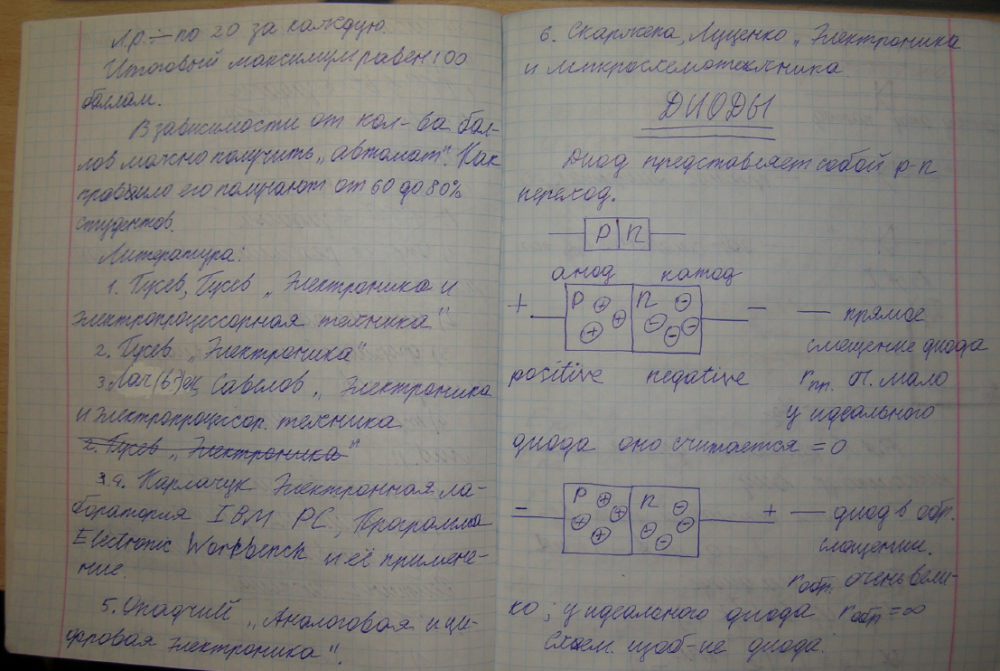 Л.р. – по 20 за каждую.
Итоговый максимум равен 100
баллам.
В зависимости от кол-ва бал-
лов можно получить „автомат“. Как
правило его получают от 60 до 80%
студентов.
Литература:
1. Гусев, Гусев „Электроника и
электропроцессорная техника“
2. Гусев „Электроника“
3. Савёлов „Электроника
и электропроцессор. техника
2. Гусев „Электроника“
4. Карлащук Электронная ла-
боратория IBM PC, Программа
Electronic Workbench и её примене-
ние.
5. Опадчий „Аналоговая и ци-
фровая электроника“.
6. Скаржепа, Луценко „Электроника
и микросхемотехника
ДИОДЫ
Диод представляет собой p-n
переход.
P n
анод катод
+ P + + + n - - - - - — — прямое
смещение диода
positive negative rпр. о. мало
у идеального
диода оно считается = 0
- P + + + + n - - - - + — диод в обр.
смещении.
rобр. очень вели-
ко; у идеального диода rобр = ∞
Схем. изоб-ие диода: